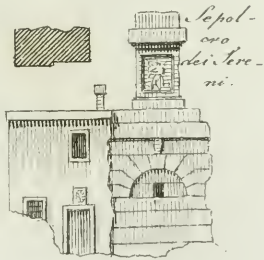 Sepol-
cro
dei Sere-
ni.